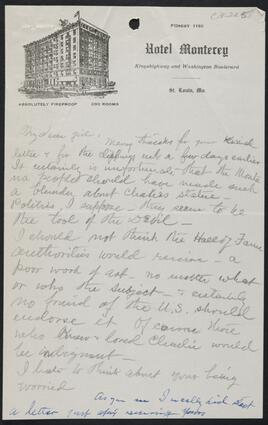 FOREST 1160
Hotel Monterey
Kingshighway and Washington Boulevard
ABSOLUTELY FIREPROOF 200 ROOMS
St. Louis, Mo.
My dear
Many thanks for your kind
letter & for the clipping sent a few days earlier
It certainly is unfortunate that the Monta
na people should have made such
a blunder about Charlie's statue -
Politics, I suppose - they seem to be
the tool of the Devil -
I should not think the Hall of Fame
authorities would receive a
poor work of art - no matter what
or who the subject - & certainly
no friend of the U.S. should
endorse it Of course those
who knew & loved Charlie would
be indignant -
I hate to think about your being
worried
As you see I and not
a letter just after receiving yours